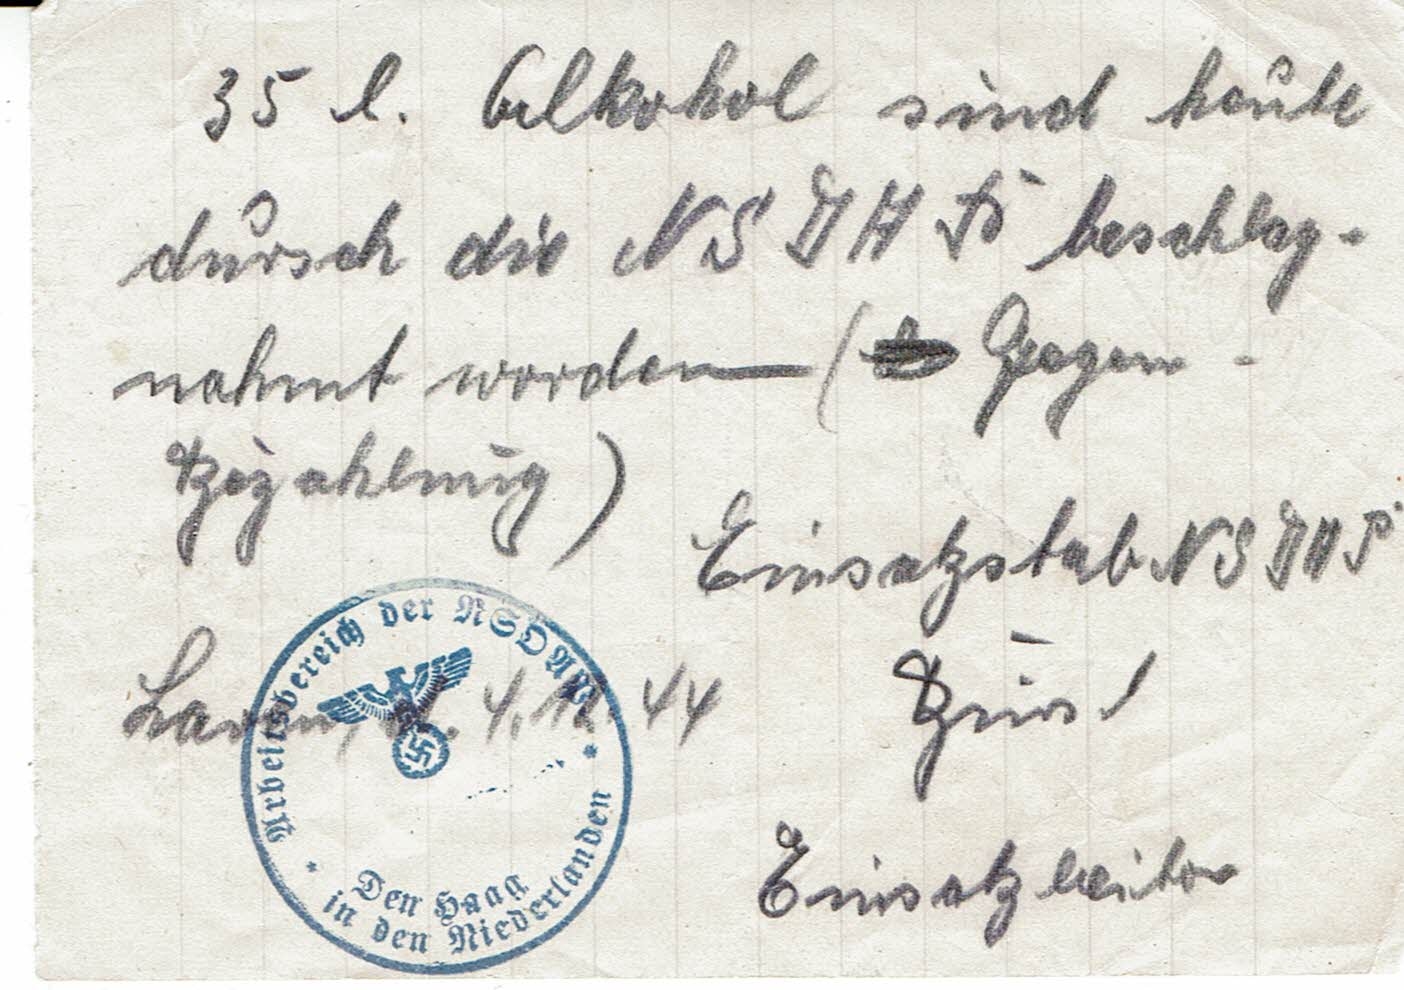 35 l. Alkohol sind heute
dursch die NSDAP beschlag-
nahmt worden ( Gegen-
Bezahlung)
Einsatzstab NSDAP
Laren, 4.12.44
Einsatzleiter
Arbeitsbereich der NSDAP
Den Haag
in den Niederlanden